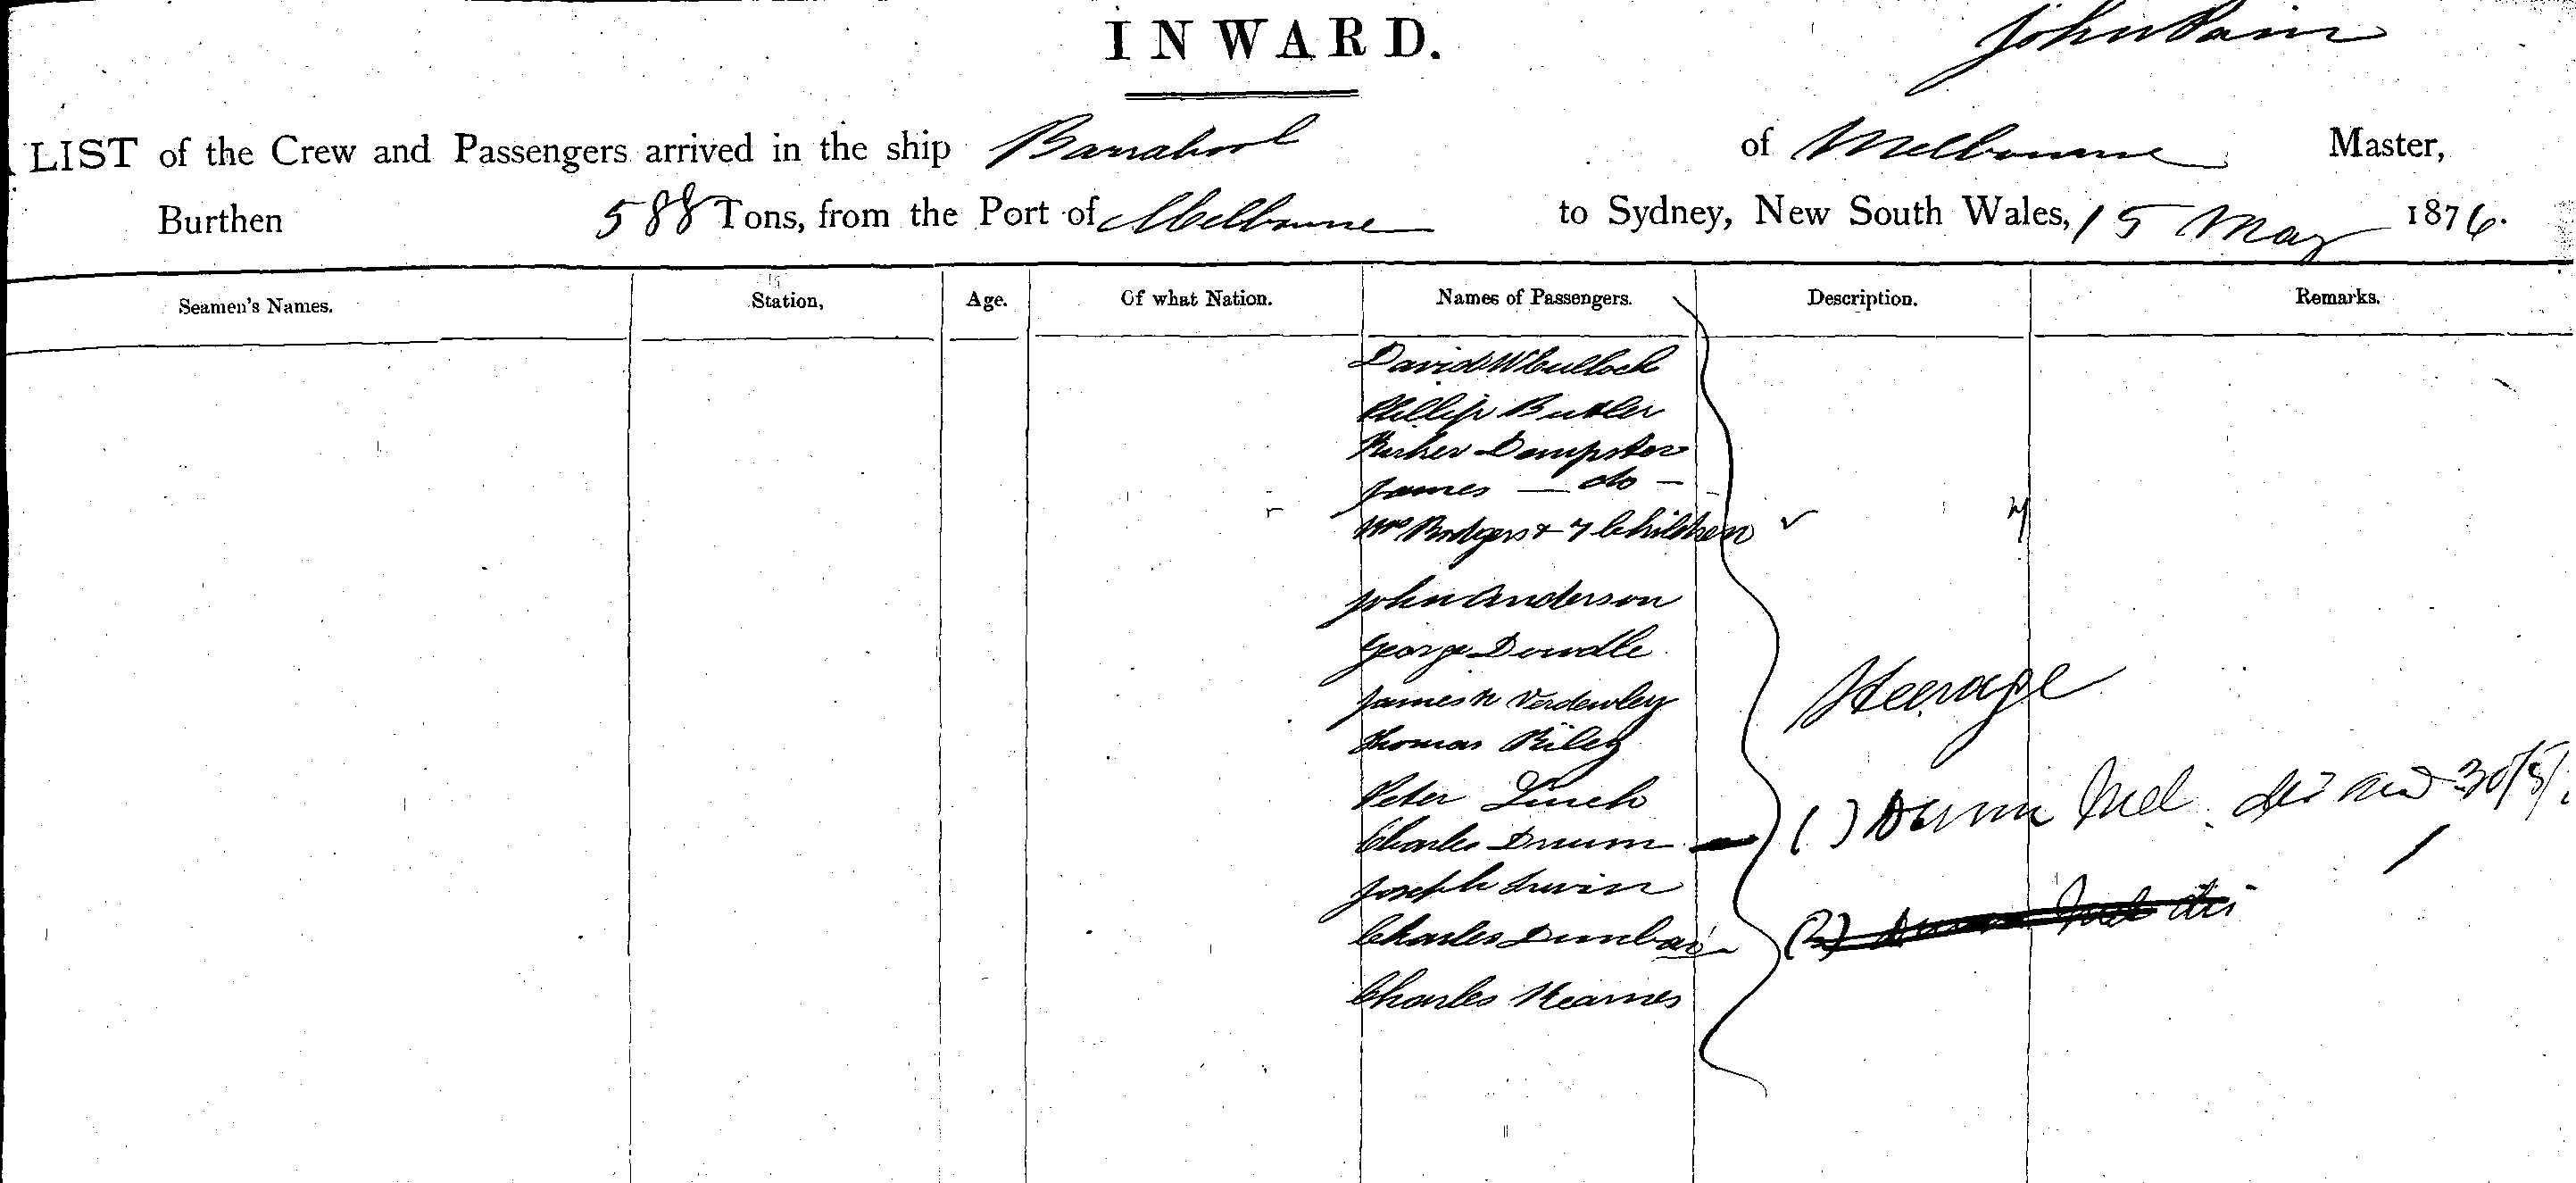 INWARD.
John Pain
LIST of the Crew and Passengers arrived in the ship Barrabool of Melbourne Master,
Burthen 588 Tons, from the Port of Melbourne to Sydney, New South Wales, 15 May 1876.
Seamen's Names. Station, Age. Of what Nation. Names of Passengers. Description. Remarks.
David McCulloch
Phillip Butler
Dempster
James — do —
Mrs Rodgers & 7 Children
John Anderson
George Dowdle
James
Thomas Riley
Peter Linch
Charles Drum
Joseph Irwin
Charles Dunbar
Charles Kearnes
Steerage
(1)
(2)